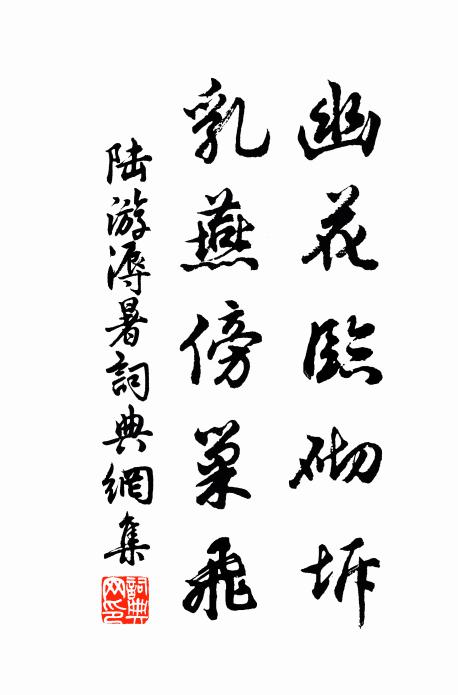 幽花臨砌坼
乳燕傍巢飛
陸游溽暑詞典網集
詞典網印